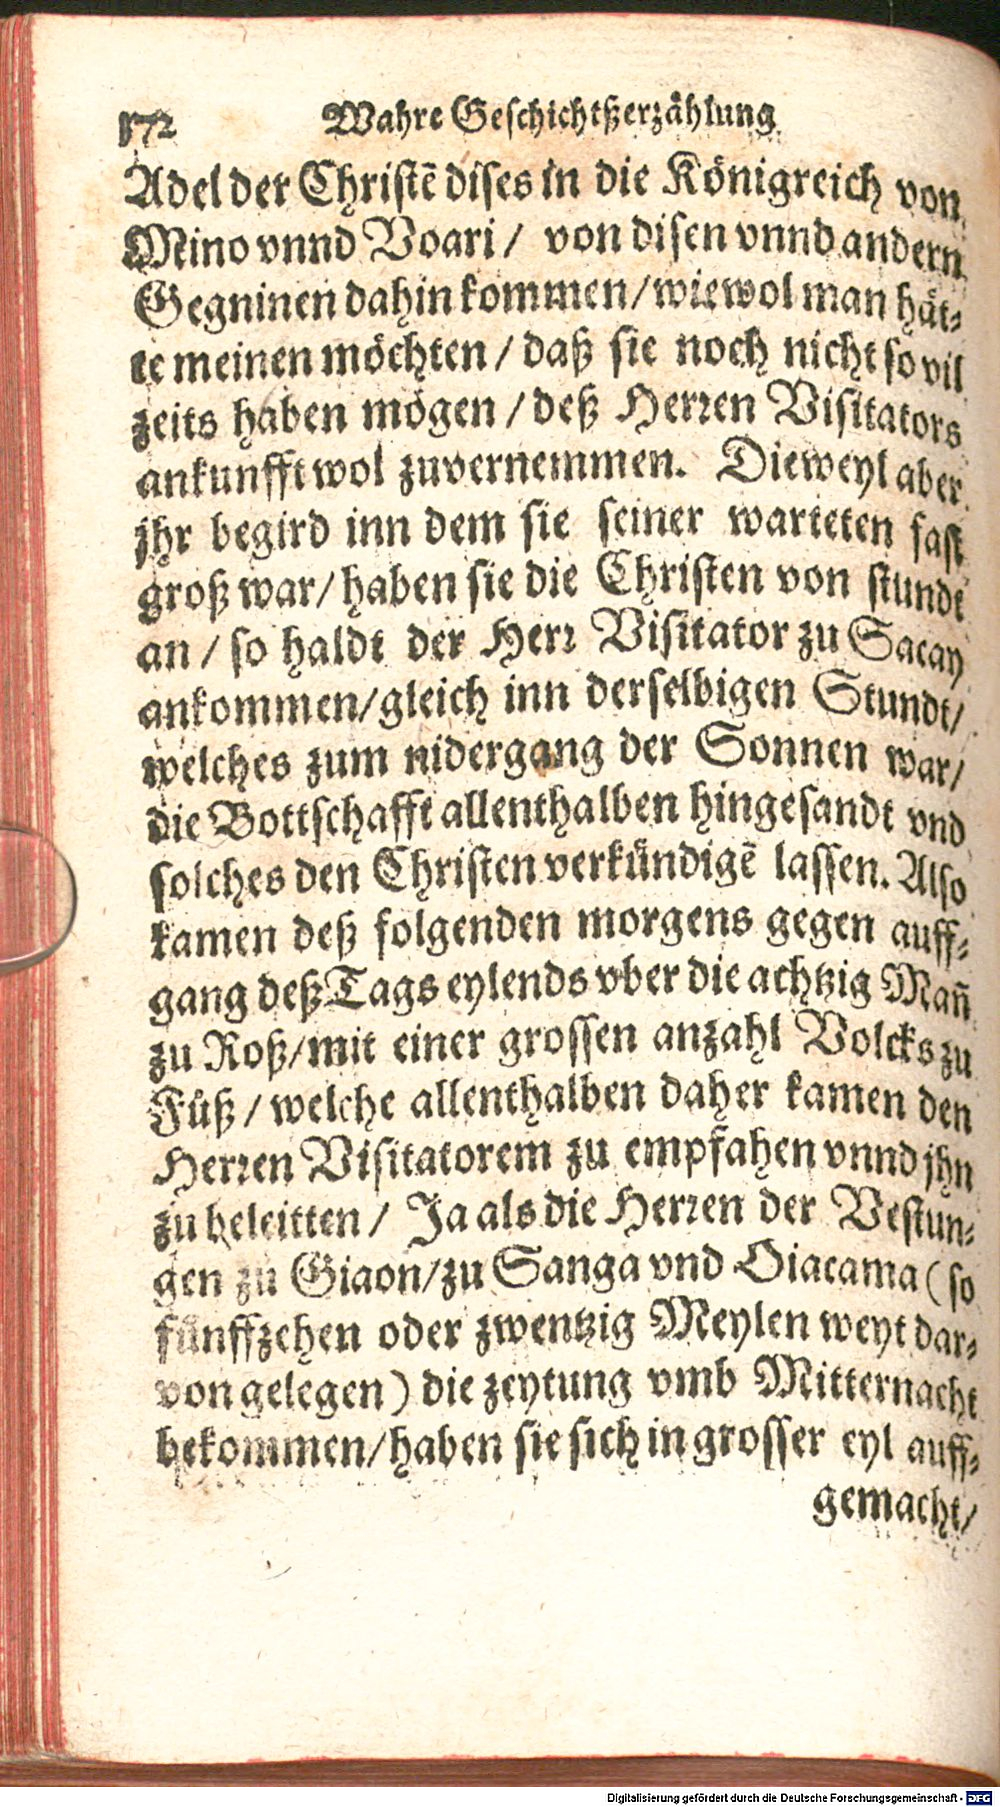 172 Wahre Geschichtßerzählung
Adel der Christē dises in die Königreich von
Mino vnnd Voari / von disen vnnd andern
Gegninen dahin kommen/wiewol man hät-
te meinen möchten / daß sie noch nicht so vil
zeits haben mögen / deß Herren Visitators
ankunfft wol zuvernemmen. Dieweyl aber
jhr begird inn dem sie seiner warteten fast
groß war/ haben sie die Christen von stundt
an / so haldt der Herr Visitator zu Sacay
ankommen/gleich inn derselbigen Stundt/
welches zum nidergang der Sonnen war/
die Bottschafft allenthalben hingesandt vnd
solches den Christen verkündigē lassen. Also
kamen deß folgenden morgens gegen auff-
gang deß Tags eylends vber die achtzig Mañ
zu Roß/mit einer grossen anzahl Volcks zu
Fůß / welche allenthalben daher kamen den
Herren Visitatorem zu empfahen vnnd jhn
zu beleitten / Ja als die Herren der Vestun-
gen zu Giaon/zu Sanga vnd Oiacama (so
fünffzehen oder zwentzig Meylen weyt dar-
von gelegen) die zeytung vmb Mitternacht
bekommen/haben sie sich in grosser eyl auff-
gemacht/
Digitalisierung gefördert durch die Deutsche Forschungsgemeinschaft - DFG